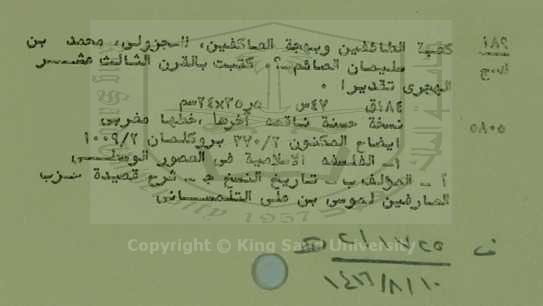 ٢٨٩ كعبة الطائفين وبهجة العاكفين، الجزولى، محمد بن
سليمان الصائم -؟. كتبت بالقرن الثالث عشر
الهجرى تقديرا .
١٨٤ق ٤٧س ٢٤x٣٥سم
نسخة حسنة ناقصة آخرها ،خطها مغربى ٥٨٠٥
ايضاح المكنون ٣٧٠/٢ بروكلمان ١٠٠٩/٢
١- الفلسفه الاسلامية فى العصور الوسطى
أ - المؤلف ب - تاريخ النسخ ج - شرح قصيدة حزب
العارفين لموسى بن على التلمسانى
Copyright © King Saud University
١٤١٦/٨/١٠